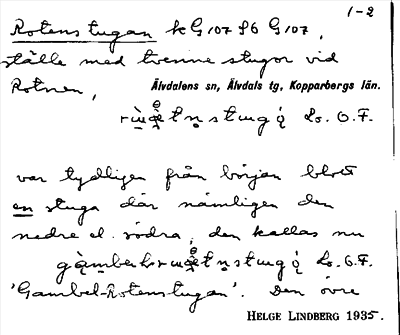 1-2
Rotenstugan k G107 S6 G107,
ställe med tvenne stugor vid
Rotnen, Älvdalens sn, Älvdals tg, Kopparbergs län.
Lo. O.F.
var tydligen från början blott
en stuga där nämligen den
nedre el. södra, den kallas nu
Lo. O.F.
'Gambel-Rotenstugan'. Den övre
HELGE LINDBERG 1935.